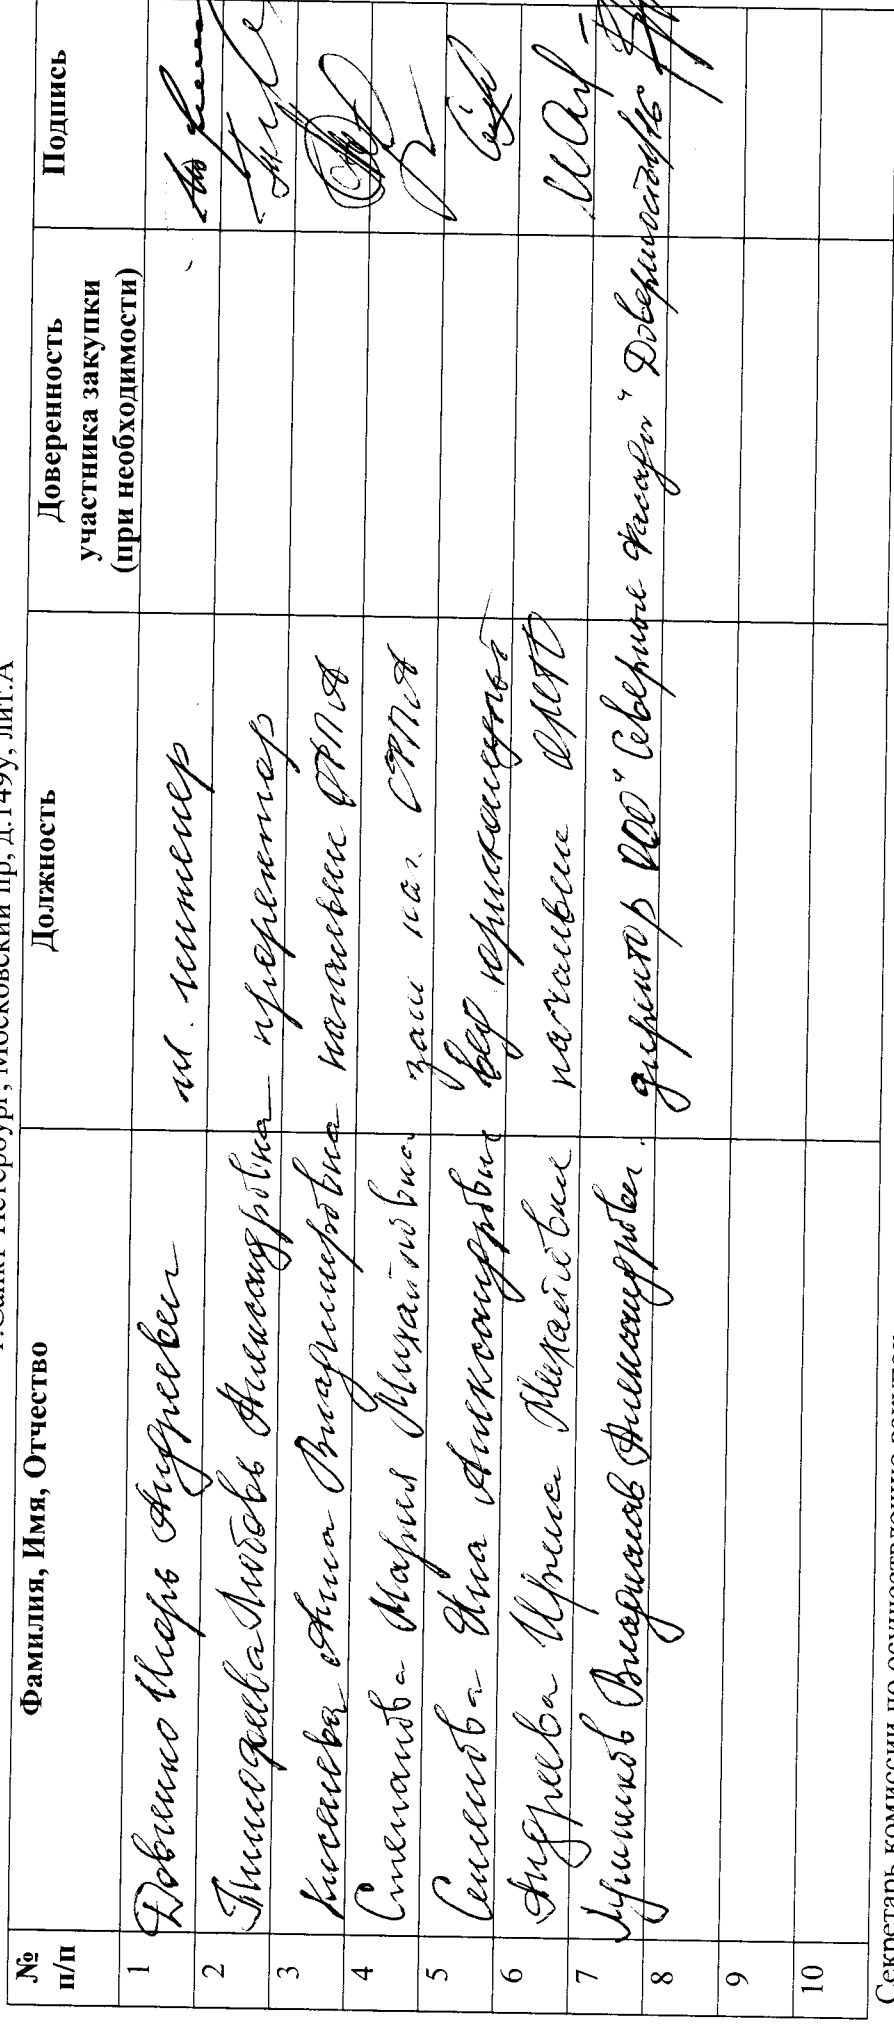 г.Санкт-Петербург, Московский пр, д.149у, лит.А
№ п/п Фамилия, Имя, Отчество Должность Доверенность участника закупки (при необходимости) Подпись
1 Довженко Игорь Андреевич гл. инженер
2 Тимофеева Любовь Александровна проректор
3 Киселева Анна Владимировна начальник ОПА
4 Степанова Мария Михайловна зам нач.
5 Семенова Яна Александровна вед юрисконсульт
6 Андреева Ирина Михайловна начальник
7 Владислав Александрович директор ООО "Северные Фасады" Доверенность
8
9
10
Секретарь комиссии по осуществлению закупок